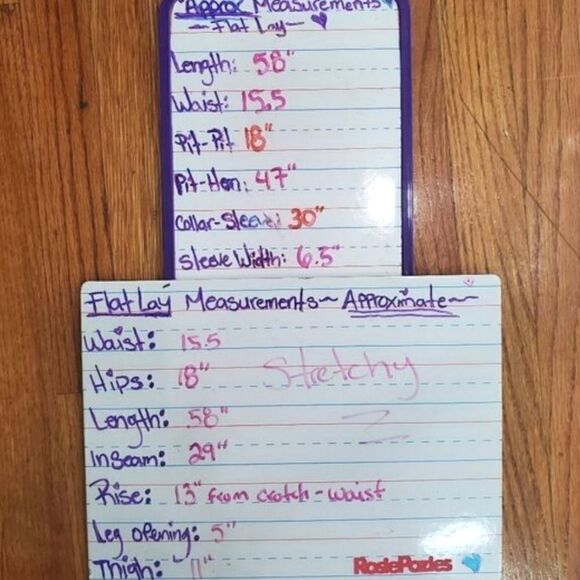 Approx Measurements
~Flat Lay~
Length: 58"
Waist: 15.5
Pit-Pit 18"
Pit-Hem: 47"
Collar-Sleeve: 30"
Sleeve Width: 6.5"
Flat Lay Measurements~ Approximate~
Waist: 15.5
Hips: 18" Stretchy
Length: 58"
Inseam: 29"
Rise: 13" from crotch-waist
Leg opening: 5"
Thigh: 11"
RosiePozies